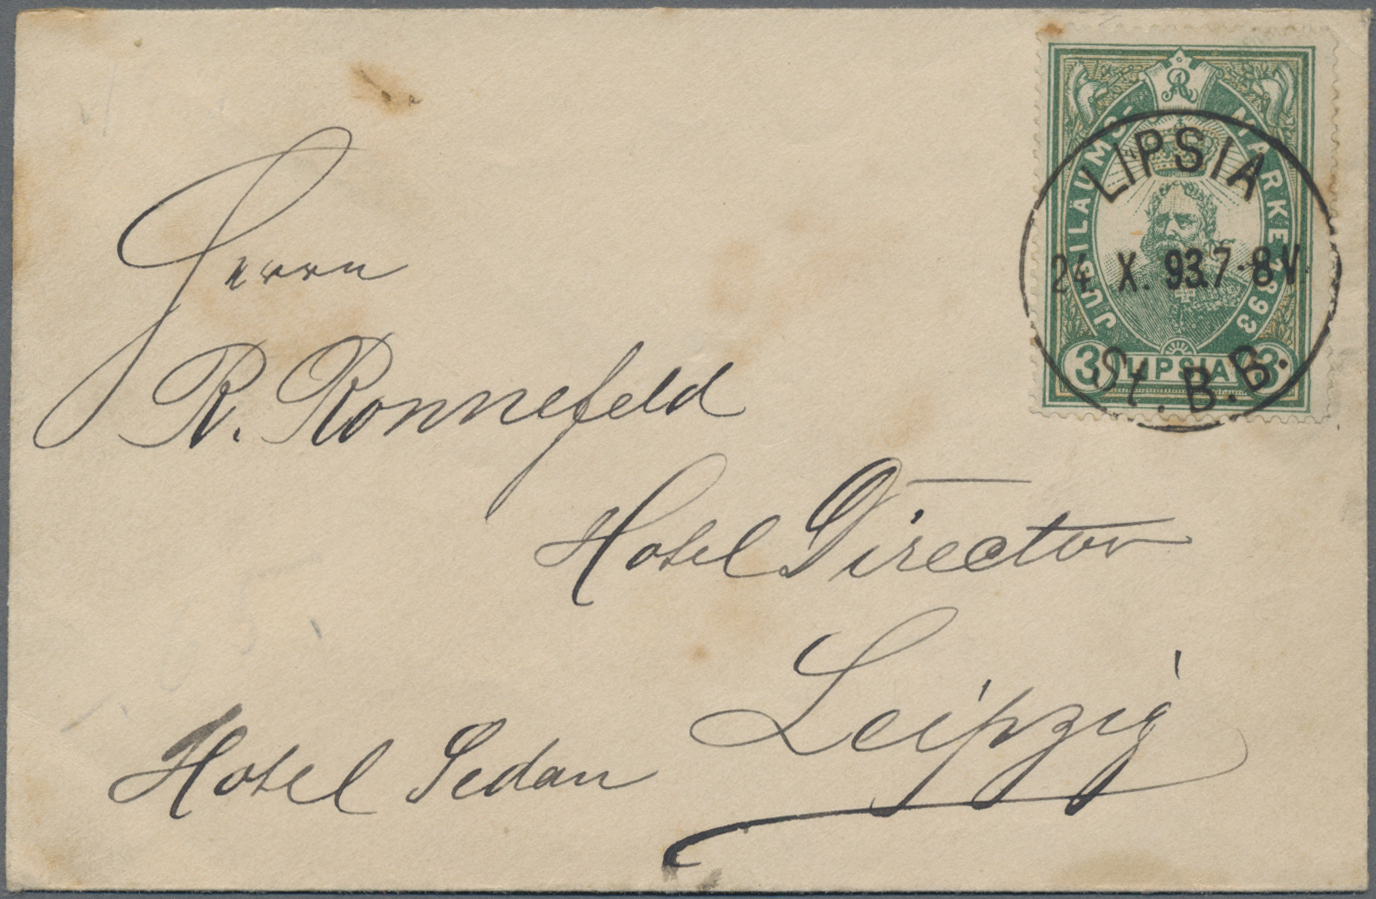 JUBILÄUMS-MARKE 1893
3 LIPSIA 3
LIPSIA
24 X. 93.7-8 V.
St. B. B.
Herrn
R. Ronnefeld
Hotel Director
Leipzig
Hotel Sedan